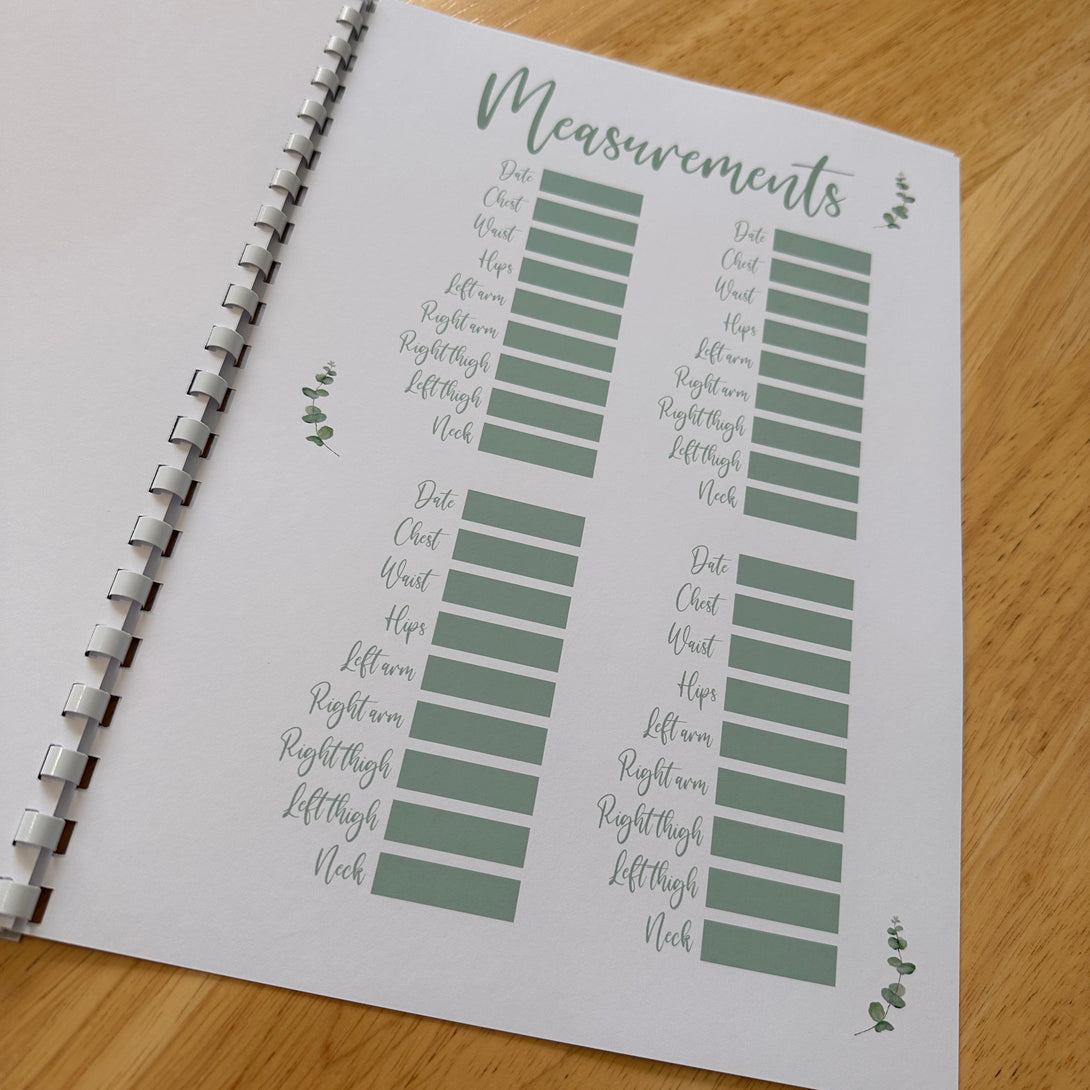 Measurements
Date
Chest
Waist
Hips
Left arm
Right arm
Right thigh
Left thigh
Neck
Date
Chest
Waist
Hips
Left arm
Right arm
Right thigh
Left thigh
Neck
Date
Chest
Waist
Hips
Left arm
Right arm
Right thigh
Left thigh
Neck
Date
Chest
Waist
Hips
Left arm
Right arm
Right thigh
Left thigh
Neck